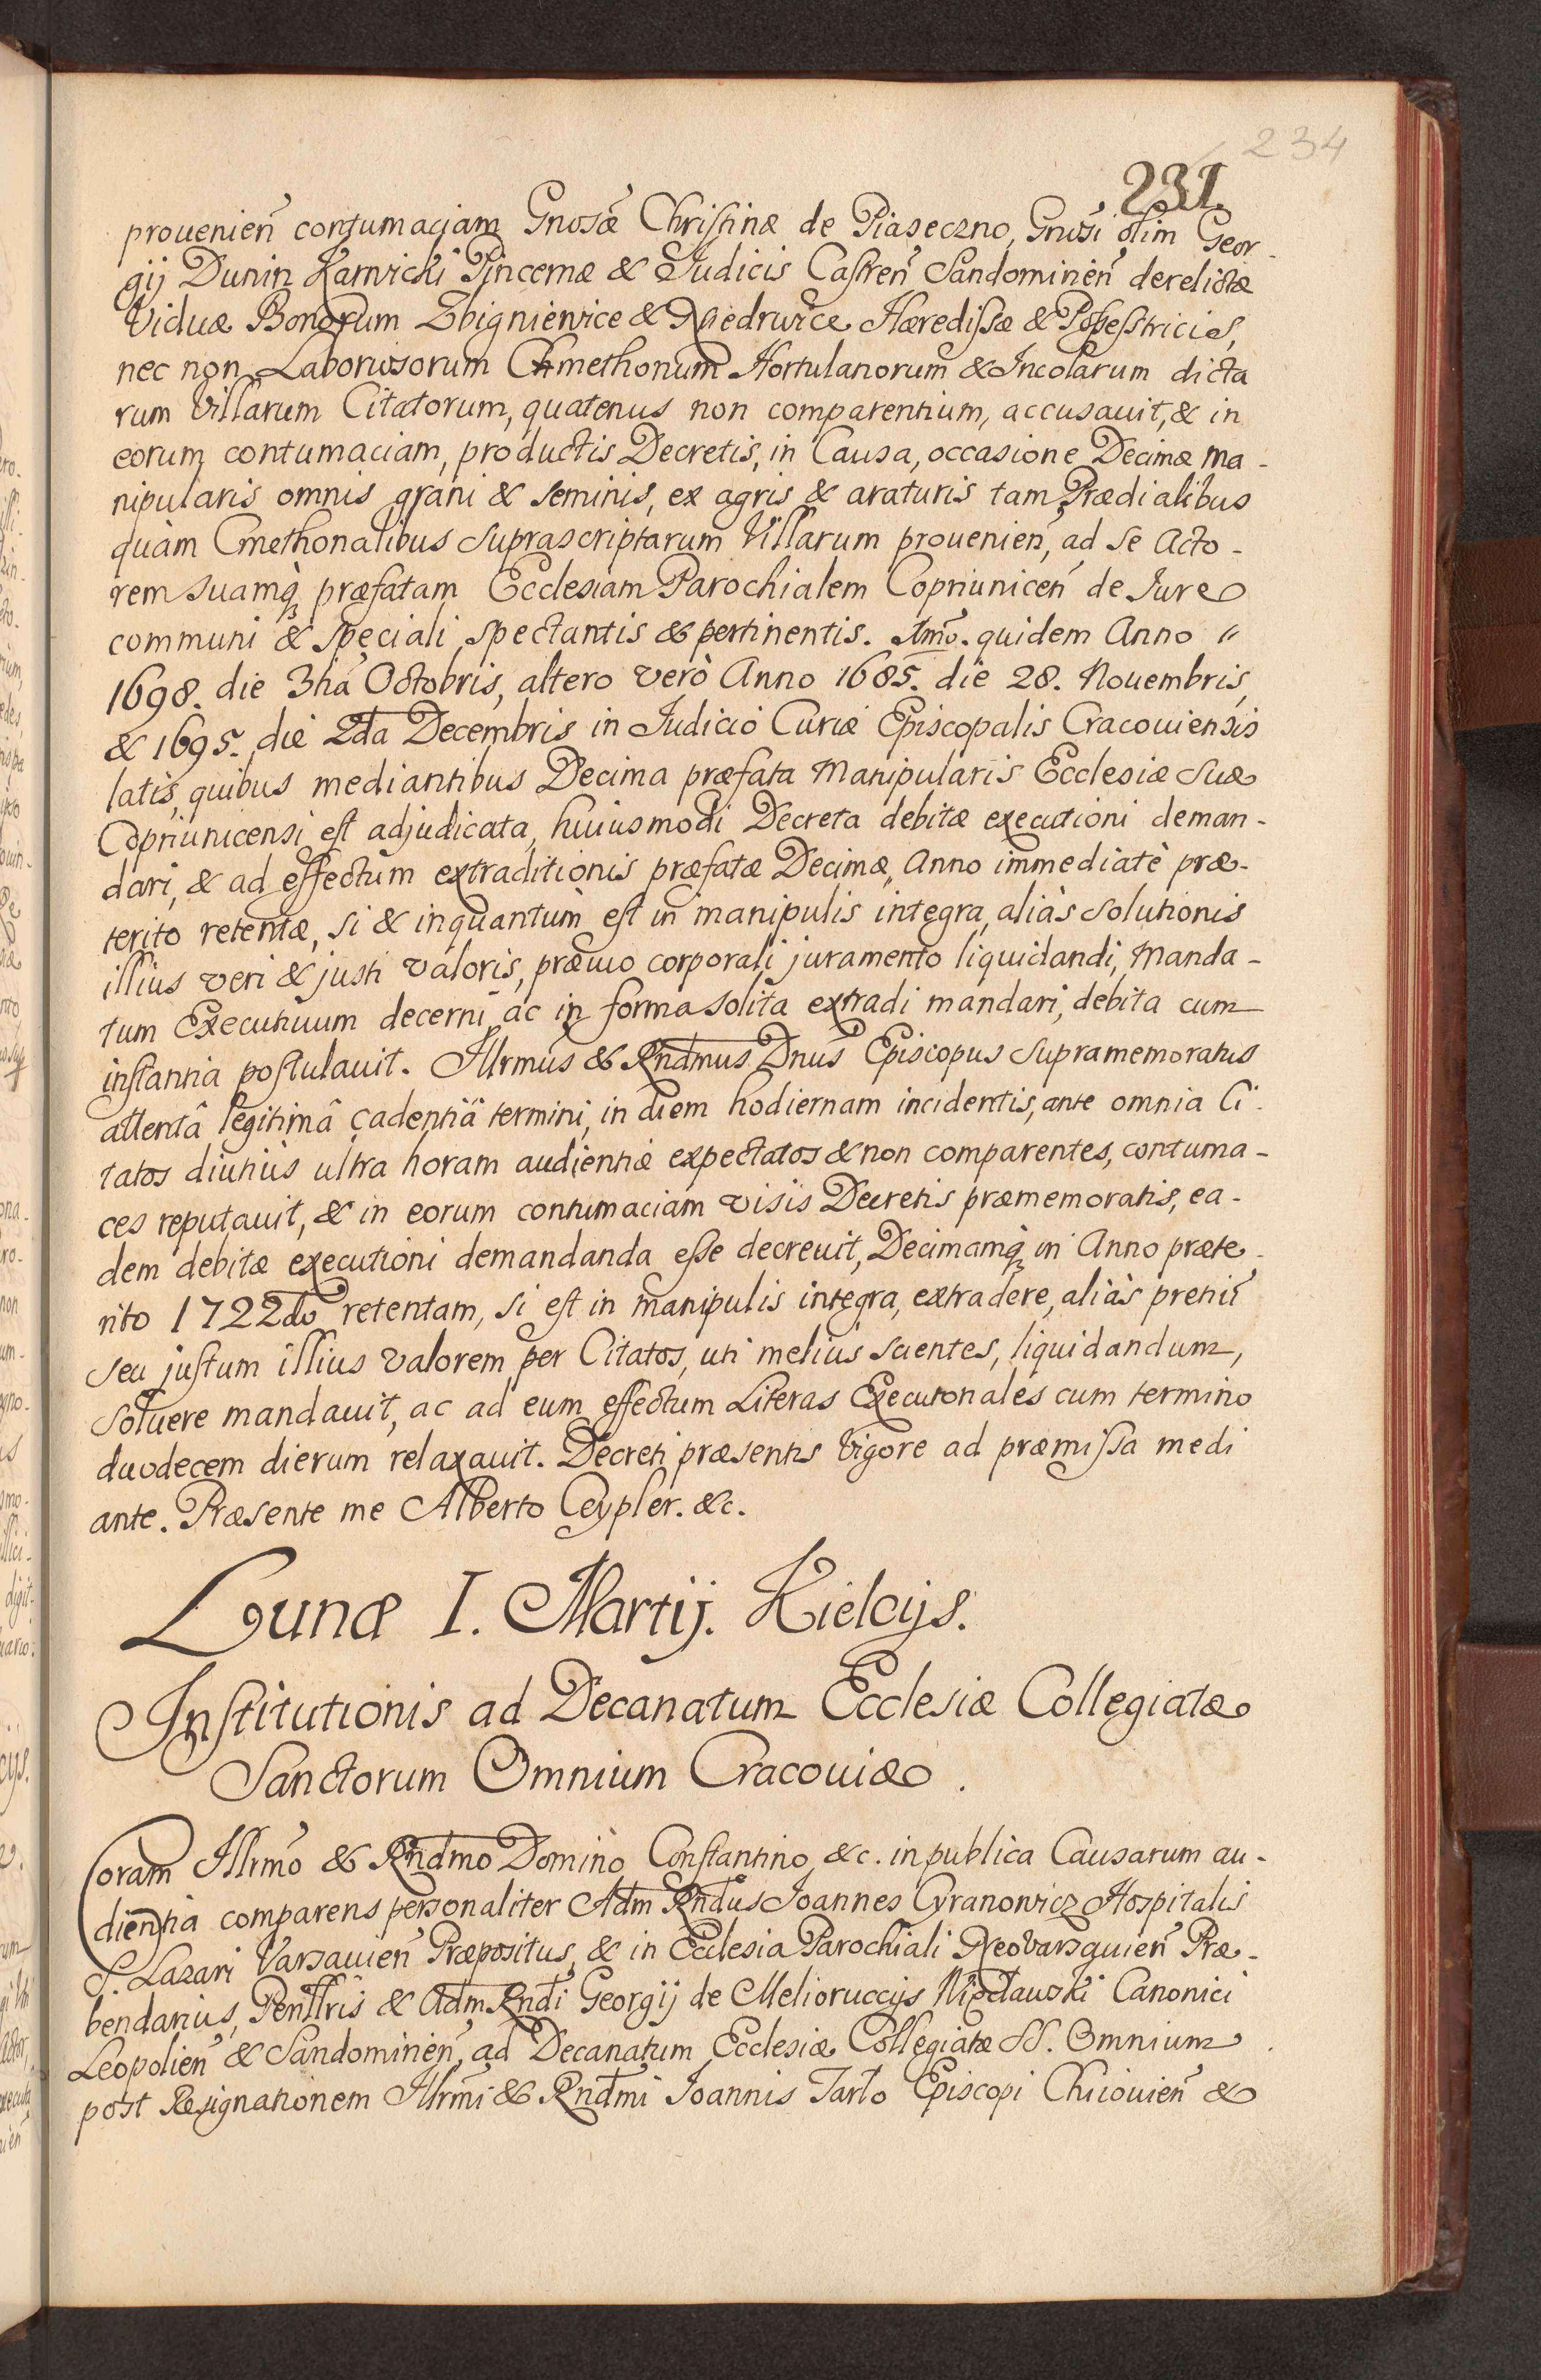 234
231.
prouenień contumaciam Gnosæ Christinæ de Piaseczno, Gnosi olim Geor-
gij Dunin Karwicki Pincernæ & Judicis Castreń Sandominień derelictæ
Viduæ Bonorum Zbigniewice & Niedrwice Hæredissæ & Possesstricis,
nec non Laboriosorum Cmethonum Hortulanorum & Incolarum dicta
rum Villarum Citatorum, quatenus non comparentium, accusauit, & in
eorum contumaciam, productis Decretis, in Causa, occasione Decimæ Ma-
nipularis omnis grani & seminis, ex agris & araturis tam Prædialibus
quàm Cmethonalibus suprascriptarum Villarum prouenień, ad se Acto-
rem suamq3 præfatam Ecclesiam Parochialem Copriuniceń de Jure
communi & speciali spectantis & pertinentis. Imo. quidem Anno "
1698. die 3tia Octobris, altero verò Anno 1685. die 28. Nouembris,
& 1695. die 2da Decembris in Judicio Curiæ Episcopalis Cracouiensis
latis, quibus mediantibus Decima præfata Manipularis Ecclesiæ suæ
Copriunicensi est adjudicata, huiusmodi Decreta debitæ executioni deman-
dari, & ad effectum extraditionis præfatæ Decimæ, Anno immediatè præ-
terito retentæ, si & inquantùm est in manipulis integra, aliàs solutionis
illius veri & justi valoris, præuio corporali juramento liquidandi, Manda-
tum Executiuum decerni ac in forma solita extradi mandari, debita cum
instantia postulauit. Illrmus & Rndmus Dnus Episcopus supramemoratus
attentâ legitimâ cadentiâ termini, in diem hodiernam incidentis, ante omnia Ci-
tatos diutius ultra horam audientiæ expectatos & non comparentes, contuma-
ces reputauit, & in eorum contumaciam visis Decretis præmemoratis, ea-
dem debitæ executioni demandanda esse decreuit, Decimamq3 in Anno præte-
rito 1722do retentam, si est in manipulis integra, extradere, aliàs pretiũ
seu justum illius valorem per Citatos, uti melius scientes, liquidandum,
soluere mandauit, ac ad eum effectum Literas Executoriales cum termino
duodecem dierum relaxauit. Decreti præsentis vigore ad præmissa medi
ante. Præsente me Alberto Ceypler. &c.
Lunæ I. Martij. Kielcijs.
Institutionis ad Decanatum Ecclesiæ Collegiatæ
Sanctorum Omnium Cracouiæ.
Coram Illrmo & Rndmo Domino Constantino &c. in publica Causarum au-
dientia comparens personaliter Adm Rndus Joannes Cyranowicz Hospitalis
S. Lazari Varsauień Præpositus, & in Ecclesia Parochiali Neovarsauień Præ-
bendarius, Pentłris & Adm Rndi Georgij de Melioruccijs Canonici
Leopolień & Sandominień, ad Decanatum Ecclesiæ Collegiatæ SS. Omnium
post Resignationem Illrmi & Rndmi Joannis Tarło Episcopi Chiouień &